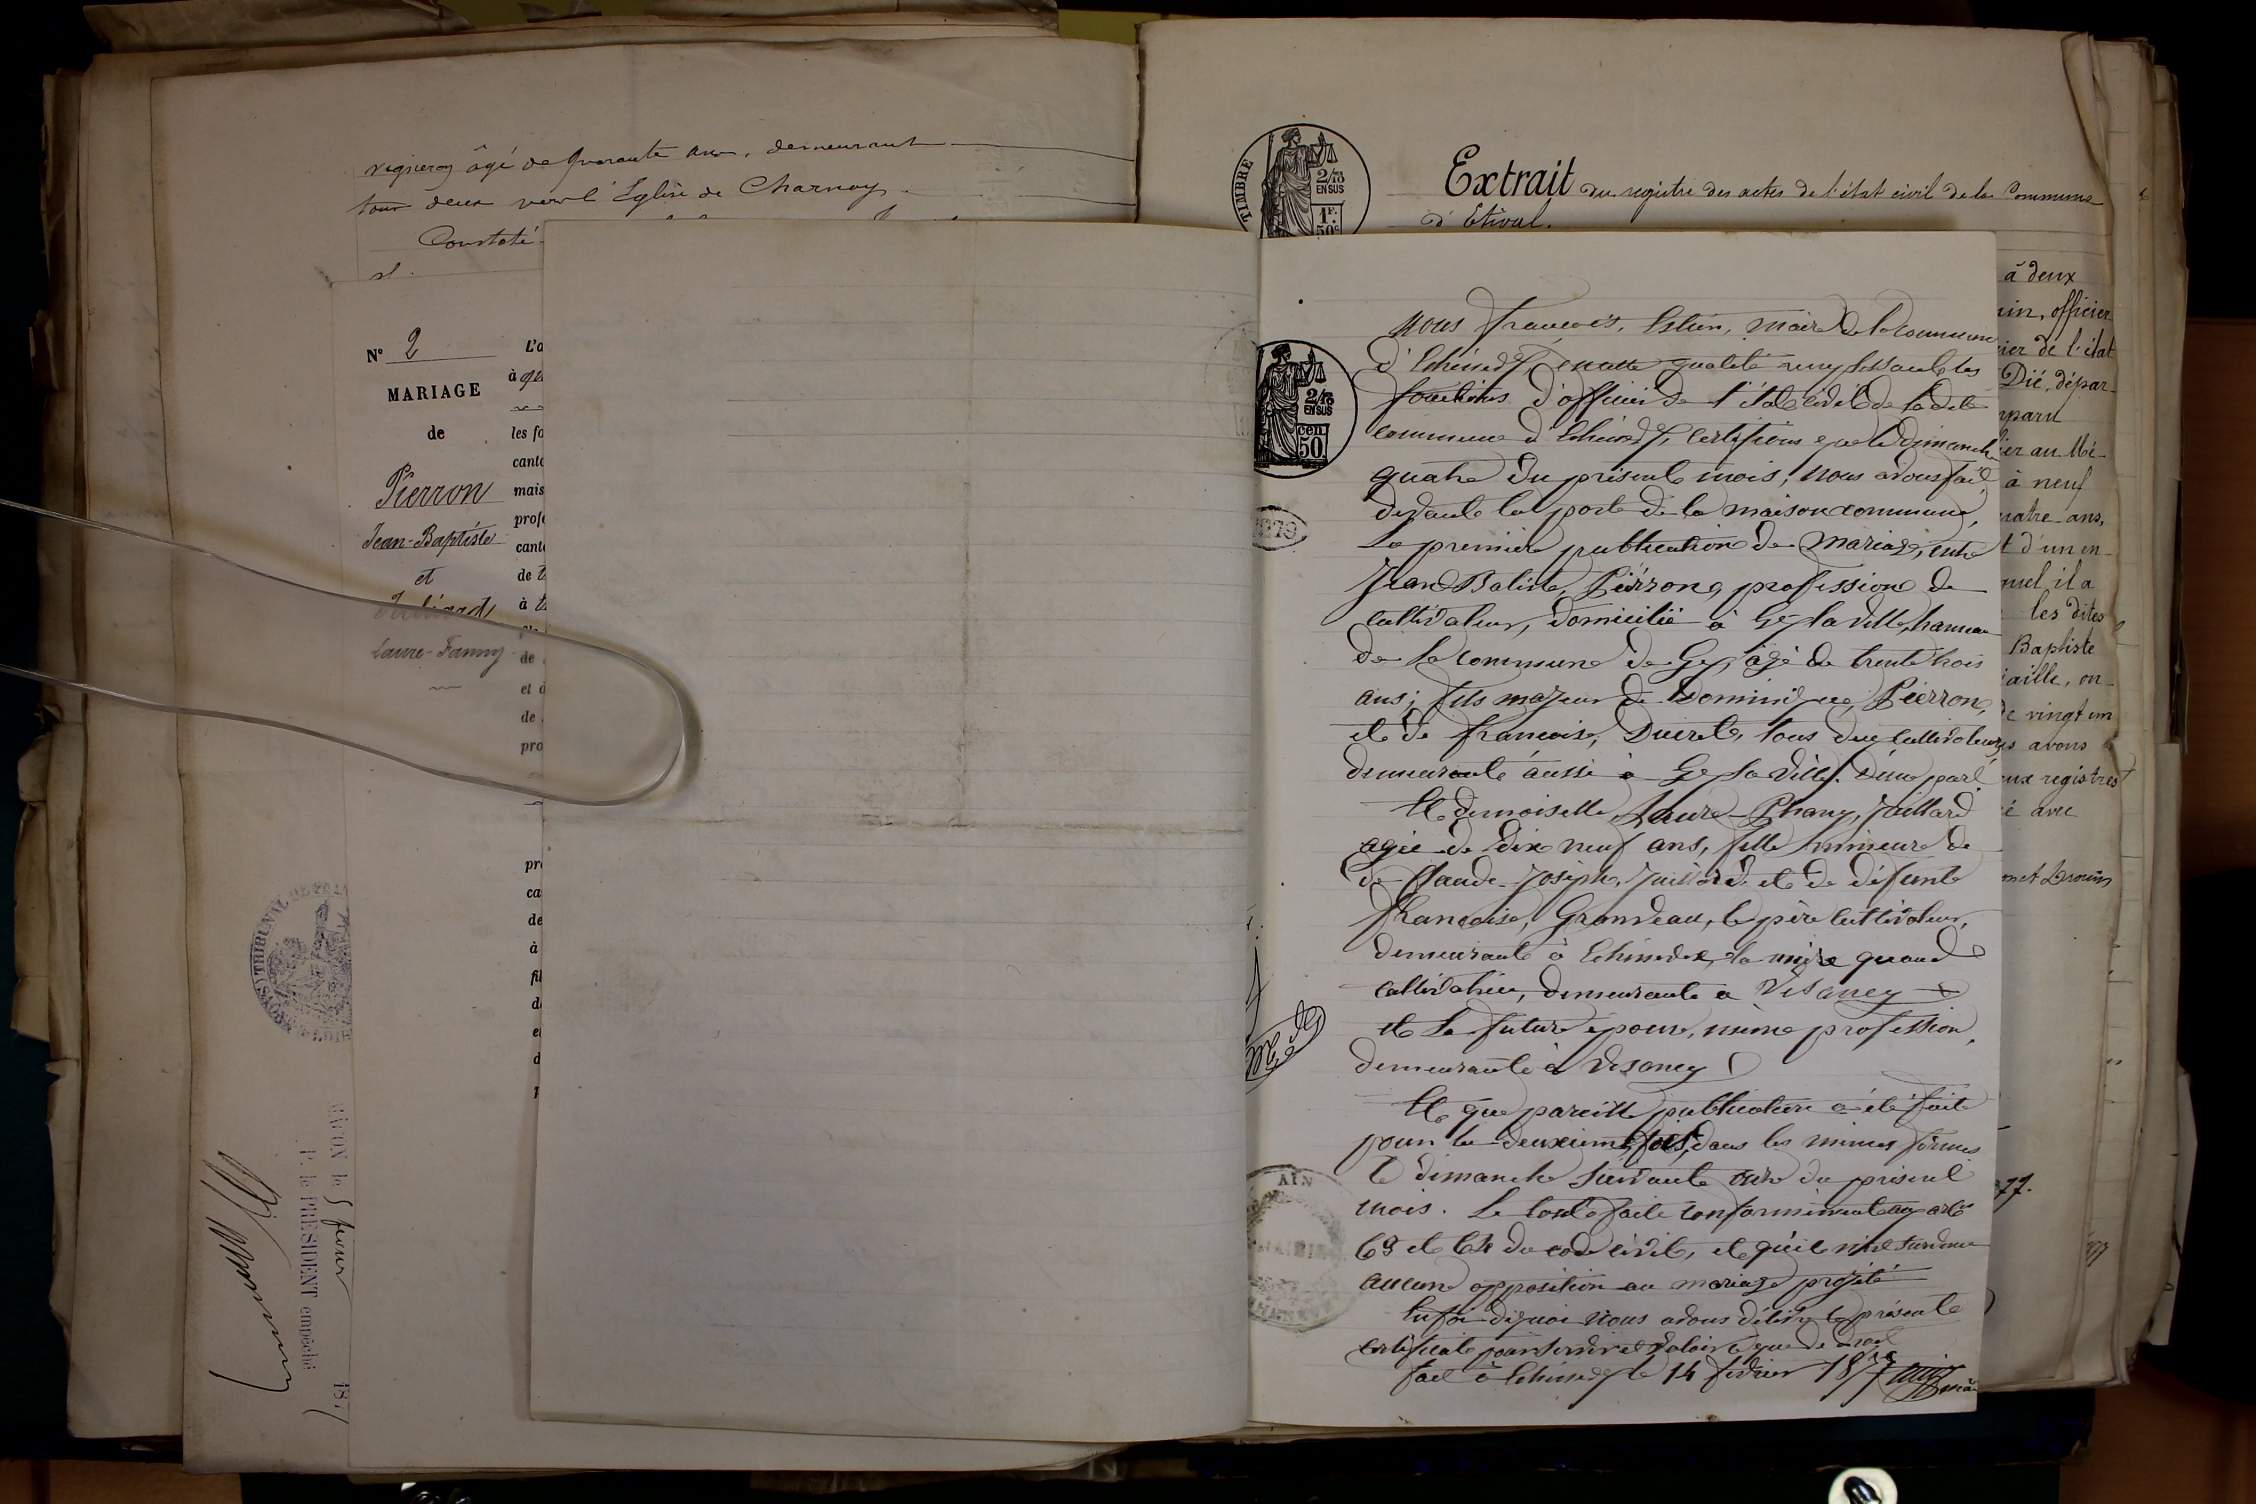 vigneron âgé de quarante ans, demeurant
tous deux vers l'Eglise de Charnay.
Constaté
N° 2
MARIAGE
de
Pierron
Jean-Baptiste
et
Juliard
Laure-Fanny
L'a
à
les fo
canto
mais
profe
canto
de
à
de
et d
de
pro
pro
ca
de
à
fil
de
et
d
TRIBUNAL
MACON le 5 février 187
P. le PRÉSIDENT empêché
TIMBRE
2/10
EN SUS
1F.
50c
Extrait du registre des actes de l'état civil de la Commune
d'Etival.
à deux
in, officier
ier de l'état
Dié, dépar-
mparu
ier au Mé-
à neuf
uatre ans,
t d'un en-
quel il a
les dites
Baptiste
aille, on-
de vingt un
s avons
ux registres
é avec
et Drouin
77.
2/10
EN SUS
cen
50
279
Nous François, maire de la commune
d' en cette qualité remplissant les
fonctions d'officier de l'état civil de la dite
commune d' certifions que le dimanche
quatre du présent mois, nous avons fait
devant la porte de la maison commune,
La première publication de mariage, entre
Jean Batiste, Pierron, profession de
cultivateur, domicilié à Gy la ville, hameau
de la commune de Gy, âgé de trente trois
ans; fils majeur de Dominique, Pierron,
et de Francoise, Ducret, tous deux cultivateurs
demeurant aussi à Gy la Ville. D'une part.
Et demoiselle, Laure-Phany, Juillard
agée de dix neuf ans, fille mineure de
de Claude-Joseph, Juillard et de défunte
Francoise, Grandeau, le père cultivateur,
demeurant à la mère quand
cultivatrice, demeurante à Vésancy
et la future épouse, même profession,
demeurante à Vésancy
Et que pareille publication a été faite
pour la deuxième fois, dans les mêmes formes
le dimanche suivant onze du présent
mois. Le tout fait conformément aux artes
63 et 64 du code civil, et qu'il n'est survenu
aucune opposition au mariage projeté
En foi de quoi nous avons délivré le présent
certificat pour servir et valoir ce que de droit
fait à le 14 février 1877
AIN
MAIRIE